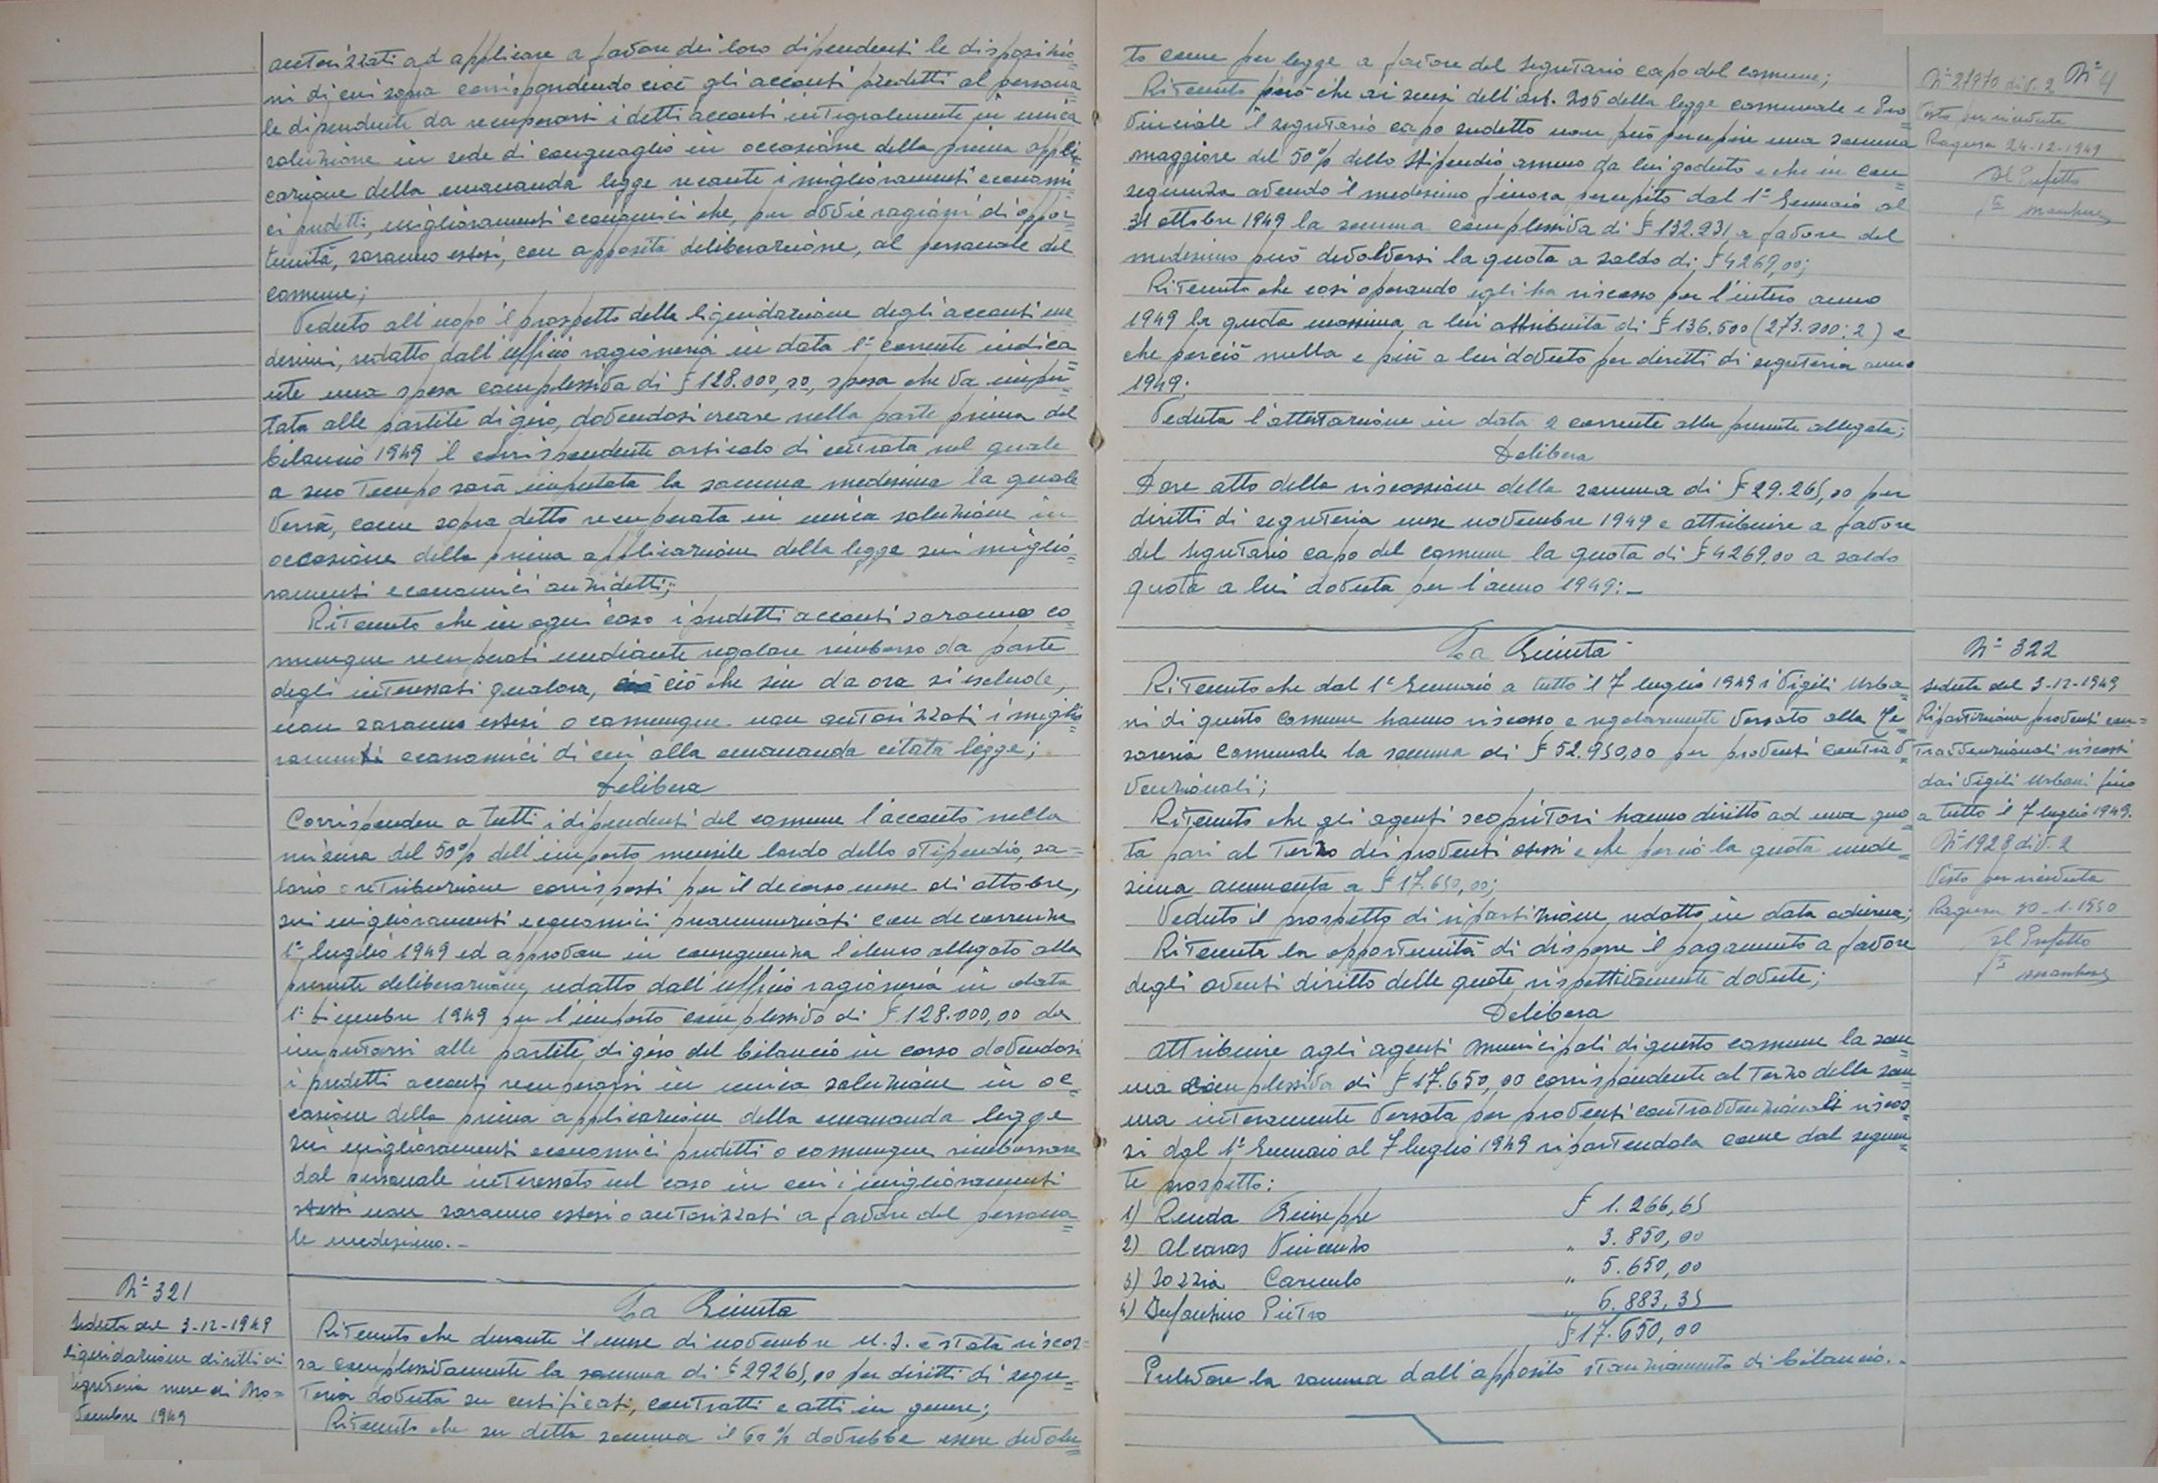 autorizzati ad applicare a favore dei loro dipendenti le disposizio=
ni di cui sopra corrispondendo cioè gli acconti predetti al persona=
le dipendente da recuperarsi i detti acconti integralmente in unica
soluzione in sede di conguaglio in occasione della prima appli=
cazione della emananda legge recante i miglioramenti economi=
ci predetti, miglioramenti economici che, per ovvie ragioni di oppor=
tunità, saranno estesi, con apposita deliberazione, al personale del
comune;
Veduto all'uopo il prospetto della liquidazione degli acconti me
desimi, redatto dall'ufficio ragioneria in data 1° corrente indica=
nte una spesa complessiva di £ 128.000,00, spesa che va impu=
tata alle partite di giro, dovendosi creare nella parte prima del
bilancio 1949 il corrispondente articolo di entrata nel quale
a suo tempo sarà imputata la somma medesima la quale
verrà, come sopra detto recuperata in unica soluzione in
occasione della prima applicazione della legge sui miglio=
ramenti economici anzidetti;
Ritenuto che in ogni caso i predetti acconti saranno co
munque recuperati mediante regolare rimborso da parte
degli interessati qualora, ciò che sin da ora si esclude,
non saranno estesi o comunque non autorizzati i miglio=
ramenti economici di cui alla emananda citata legge;
Delibera
Corrispondere a tutti i dipendenti del comune l'acconto nella
misura del 50% dell'importo mensile lordo dello stipendio, sa=
lario o retribuzione corrisposti per il decorso mese di ottobre,
sui miglioramenti economici preannunziati con decorrenza
1° luglio 1949 ed approvare in conseguenza l'elenco allegato alla
presente deliberazione, redatto dall'ufficio ragioneria in data
1° dicembre 1949 per l'importo complessivo di £ 128.000,00 da
imputarsi alle partite di giro del bilancio in corso dovendosi
i predetti acconti recuperarsi in unica soluzione in oc=
casione della prima applicazione della emananda legge
sui miglioramenti economici predetti o comunque rimborsare
dal personale interessato nel caso in cui i miglioramenti
stessi non saranno estesi o autorizzati a favore del persona=
le medesimo.-
N° 321
Seduta del 3-12-1949
Liquidazione diritti di
segreteria mese di No=
vembre 1949
La Giunta
Ritenuto che durante il mese di novembre U.S. è stata riscos=
sa complessivamente la somma di £ 29265,00 per diritti di segre=
teria dovuta su certificati, contratti e atti in genere;
Ritenuto che su detta somma il 60% dovrebbe essere devolu=
to come per legge a favore del segretario capo del comune;
Ritenuto però che ai sensi dell'art. 205 della legge comunale e Pro=
vinciale il segretario capo sudetto non può percepire una somma
maggiore del 50% dello stipendio annuo da lui goduto e che in con=
seguenza avendo il medesimo finora percepito dal 1° Gennaio al
31 ottobre 1949 la somma complessiva di £ 132.231 a favore del
medesimo può devolversi la quota a saldo di £ 4269,00;
Ritenuto che così operando egli ha riscosso per l'intero anno
1949 la quota massima a lui attribuita di £ 136.500 (273.000:2) e
che perciò nulla e più a lui dovuto per diritti di segreteria anno
1949;
Veduta l'attestazione in data 2 corrente alla presente allegata;
Delibera
Dare atto della riscossione della somma di £ 29.265,00 per
diritti di segreteria mese novembre 1949 e attribuire a favore
del segretario capo del comune la quota di £ 4269,00 a saldo
quota a lui dovuta per l'anno 1949:-
N° 27970 div. 2
N° 4
Visto per ricevuta
Ragusa 24-12-1949
Il Prefetto
La Giunta
Ritenuto che dal 1° Gennaio a tutto il 7 luglio 1949 i Vigili Urba=
ni di questo comune hanno riscosso e regolarmente versato alla Te
soreria Comunale la somma di £ 52.950,00 per proventi contrav
venzionali;
Ritenuto che gli agenti scopritori hanno diritto ad una quo=
ta pari al terzo dei proventi stessi e che perciò la quota mede=
sima ammonta a £ 17.650,00;
Veduto il prospetto di ripartizione redatto in data odierna;
Ritenuta la opportunità di disporre il pagamento a favore
degli aventi diritto delle quote rispettivamente dovute;
Delibera
Attribuire agli agenti municipali di questo comune la som
ma complessiva di £ 17.650,00 corrispondente al terzo della som
ma interamente versata per proventi contravvenzionali riscos=
si dal 1° Gennaio al 7 luglio 1949 ripartendola come dal seguen=
te prospetto:
1) Renda Giuseppe £ 1.266,65
2) Alcaras Vincenzo " 3.850,00
3) Iozzia Carmelo " 5.650,00
4) Infantino Pietro " 6.883,35
£ 17.650,00
Prelevare la somma dall'apposito stanziamento di bilancio.-
N° 322
Seduta del 3-12-1949
Ripartizione proventi con=
travvenzionali riscossi
dai Vigili Urbani fino
a tutto il 7 luglio 1949.
N° 1928 div. 2
Visto per ricevuta
Ragusa 30-1-1950
Il Prefetto